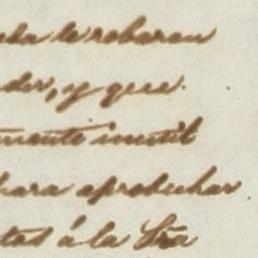 la robaran
der, y que
mente inutil
para aprobechar
tas á la Sra